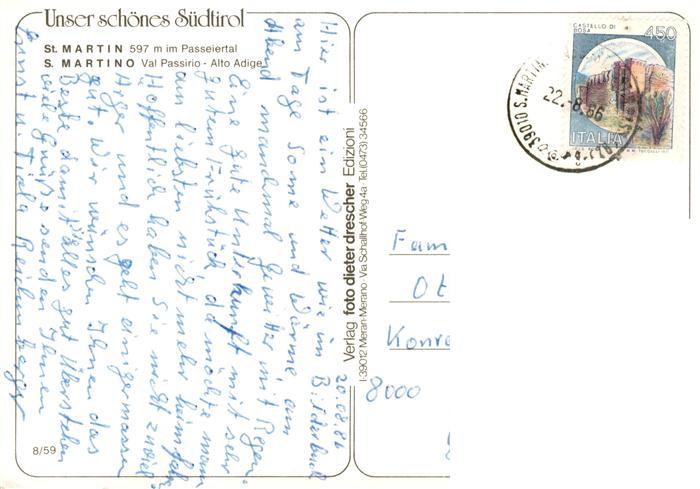 Unser schönes Südtirol
St. MARTIN 597 m im Passeiertal
S. MARTINO Val Passirio - Alto Adige
20.08.86
Hier ist ein Wetter wie im Bilderbuch
am Tage Sonne und Wärme, am
Abend manchmal Gewitter mit Regen.
Eine gute Unterkunft mit sehr
gutem Frühstück, da möchte man
am liebsten nicht mehr heimfahren
Hoffentlich haben Sie nicht zuviel
Ärger und es geht einigermassen
gut. Wir wünschen Ihnen das
Beste damit Sie alles gut überstehen
viele Grüße senden Ihnen
Ernst u.
8/59
Verlag foto dieter drescher Edizioni
I-39012 Meran-Merano Via Schallhof Weg 4a Tel. (0473) 34566
CASTELLO DI BOSA
450
ITALIA
39010 S. MARTIN
22.-8.86
Fam
Ot
Konra
8000